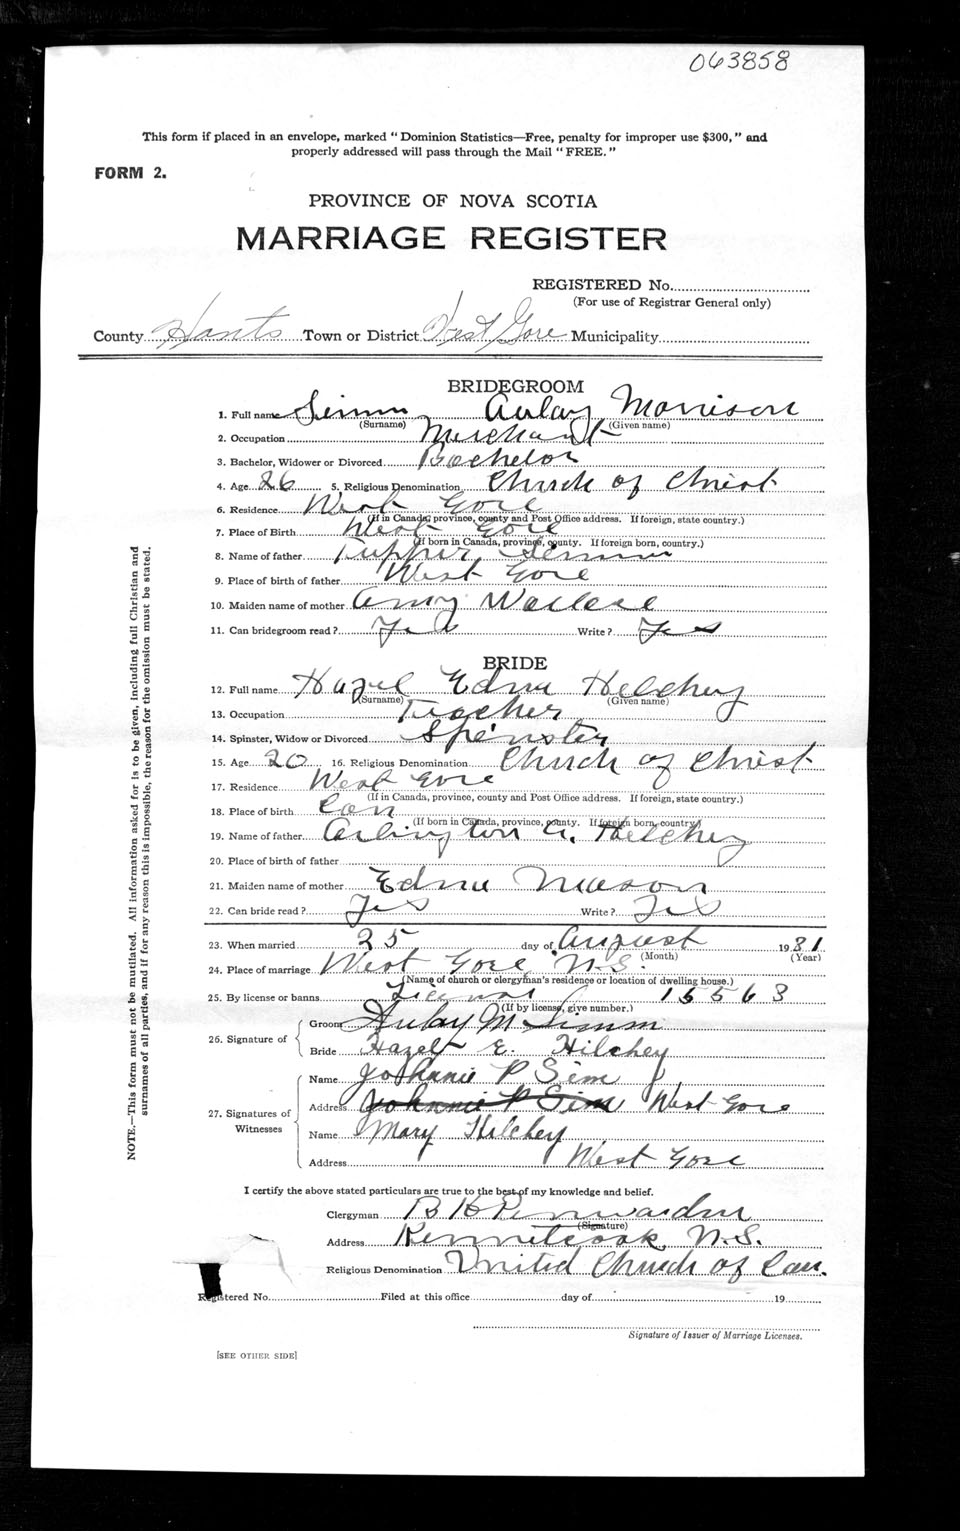 063858
This form if placed in an envelope, marked "Dominion Statistics—Free, penalty for improper use $300," and
properly addressed will pass through the Mail "FREE."
FORM 2.
PROVINCE OF NOVA SCOTIA
MARRIAGE REGISTER
REGISTERED No.
(For use of Registrar General only)
County Hants Town or District West Gore Municipality
BRIDEGROOM
1. Full name Simm Aulay Morrison
(Surname) (Given name)
2. Occupation Merchant
3. Bachelor, Widower or Divorced Bachelor
4. Age 26 5. Religious Denomination Church of Christ
6. Residence West Gore
(If in Canada, province, county and Post Office address. If foreign, state country.)
7. Place of Birth West Gore
(If born in Canada, province, county. If foreign born, country.)
8. Name of father Tupper Simm
9. Place of birth of father West Gore
10. Maiden name of mother Amy Wallace
11. Can bridegroom read? Yes Write? Yes
BRIDE
12. Full name Hazel Edna Hilchey
(Surname) (Given name)
13. Occupation Teacher
14. Spinster, Widow or Divorced Spinster
15. Age 20 16. Religious Denomination Church of Christ
17. Residence West Gore
(If in Canada, province, county and Post Office address. If foreign, state country.)
18. Place of birth Can
(If born in Canada, province, county. If foreign born, country)
19. Name of father Arlington A. Hilchey
20. Place of birth of father
21. Maiden name of mother Edna Mason
22. Can bride read? Yes Write? Yes
23. When married 25 day of August 1931
(Month) (Year)
24. Place of marriage West Gore N.S.
(Name of church or clergyman's residence or location of dwelling house.)
25. By license or banns License 15563
(If by license, give number.)
26. Signature of
Groom Aulay M Simm
Bride Hazel E. Hilchey
27. Signatures of Witnesses
Name Johnnie P Sim
Address Johnnie P Sim West Gore
Name Mary Hilchey
Address West Gore
I certify the above stated particulars are true to the best of my knowledge and belief.
Clergyman B H Penwarden
(Signature)
Address Kennetcook, N.S.
Religious Denomination United Church of Can.
Registered No. Filed at this office day of 19
Signature of Issuer of Marriage Licenses.
[SEE OTHER SIDE]
NOTE.—This form must not be mutilated. All information asked for is to be given, including full Christian and
surnames of all parties, and if for any reason this is impossible, the reason for the omission must be stated.